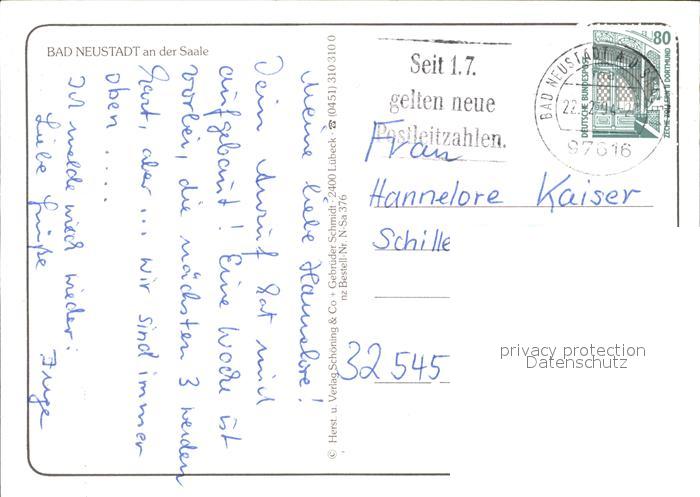 BAD NEUSTADT an der Saale
Meine liebe Hannelore!
Dein Anruf hat mich
aufgebaut! Eine Woche ist
vorbei, die nächsten 3 werden
hart, aber... wir sind immer
oben.....
Ich melde mich wieder:
Liebe Grüße
Inge
© Herst. u. Verlag Schöning & Co + Gebrüder Schmidt · 2400 Lübeck · ☎ (0451) 310 310 0
nz Bestell-Nr. N-Sa 376
Seit 1.7.
gelten neue
Postleitzahlen.
BAD NEUSTADT A D SAALE
97616
80
DEUTSCHE BUNDESPOST
ZECHE ZOLLERN II DORTMUND
Frau
Hannelore Kaiser
Schille
32545
privacy protection
Datenschutz